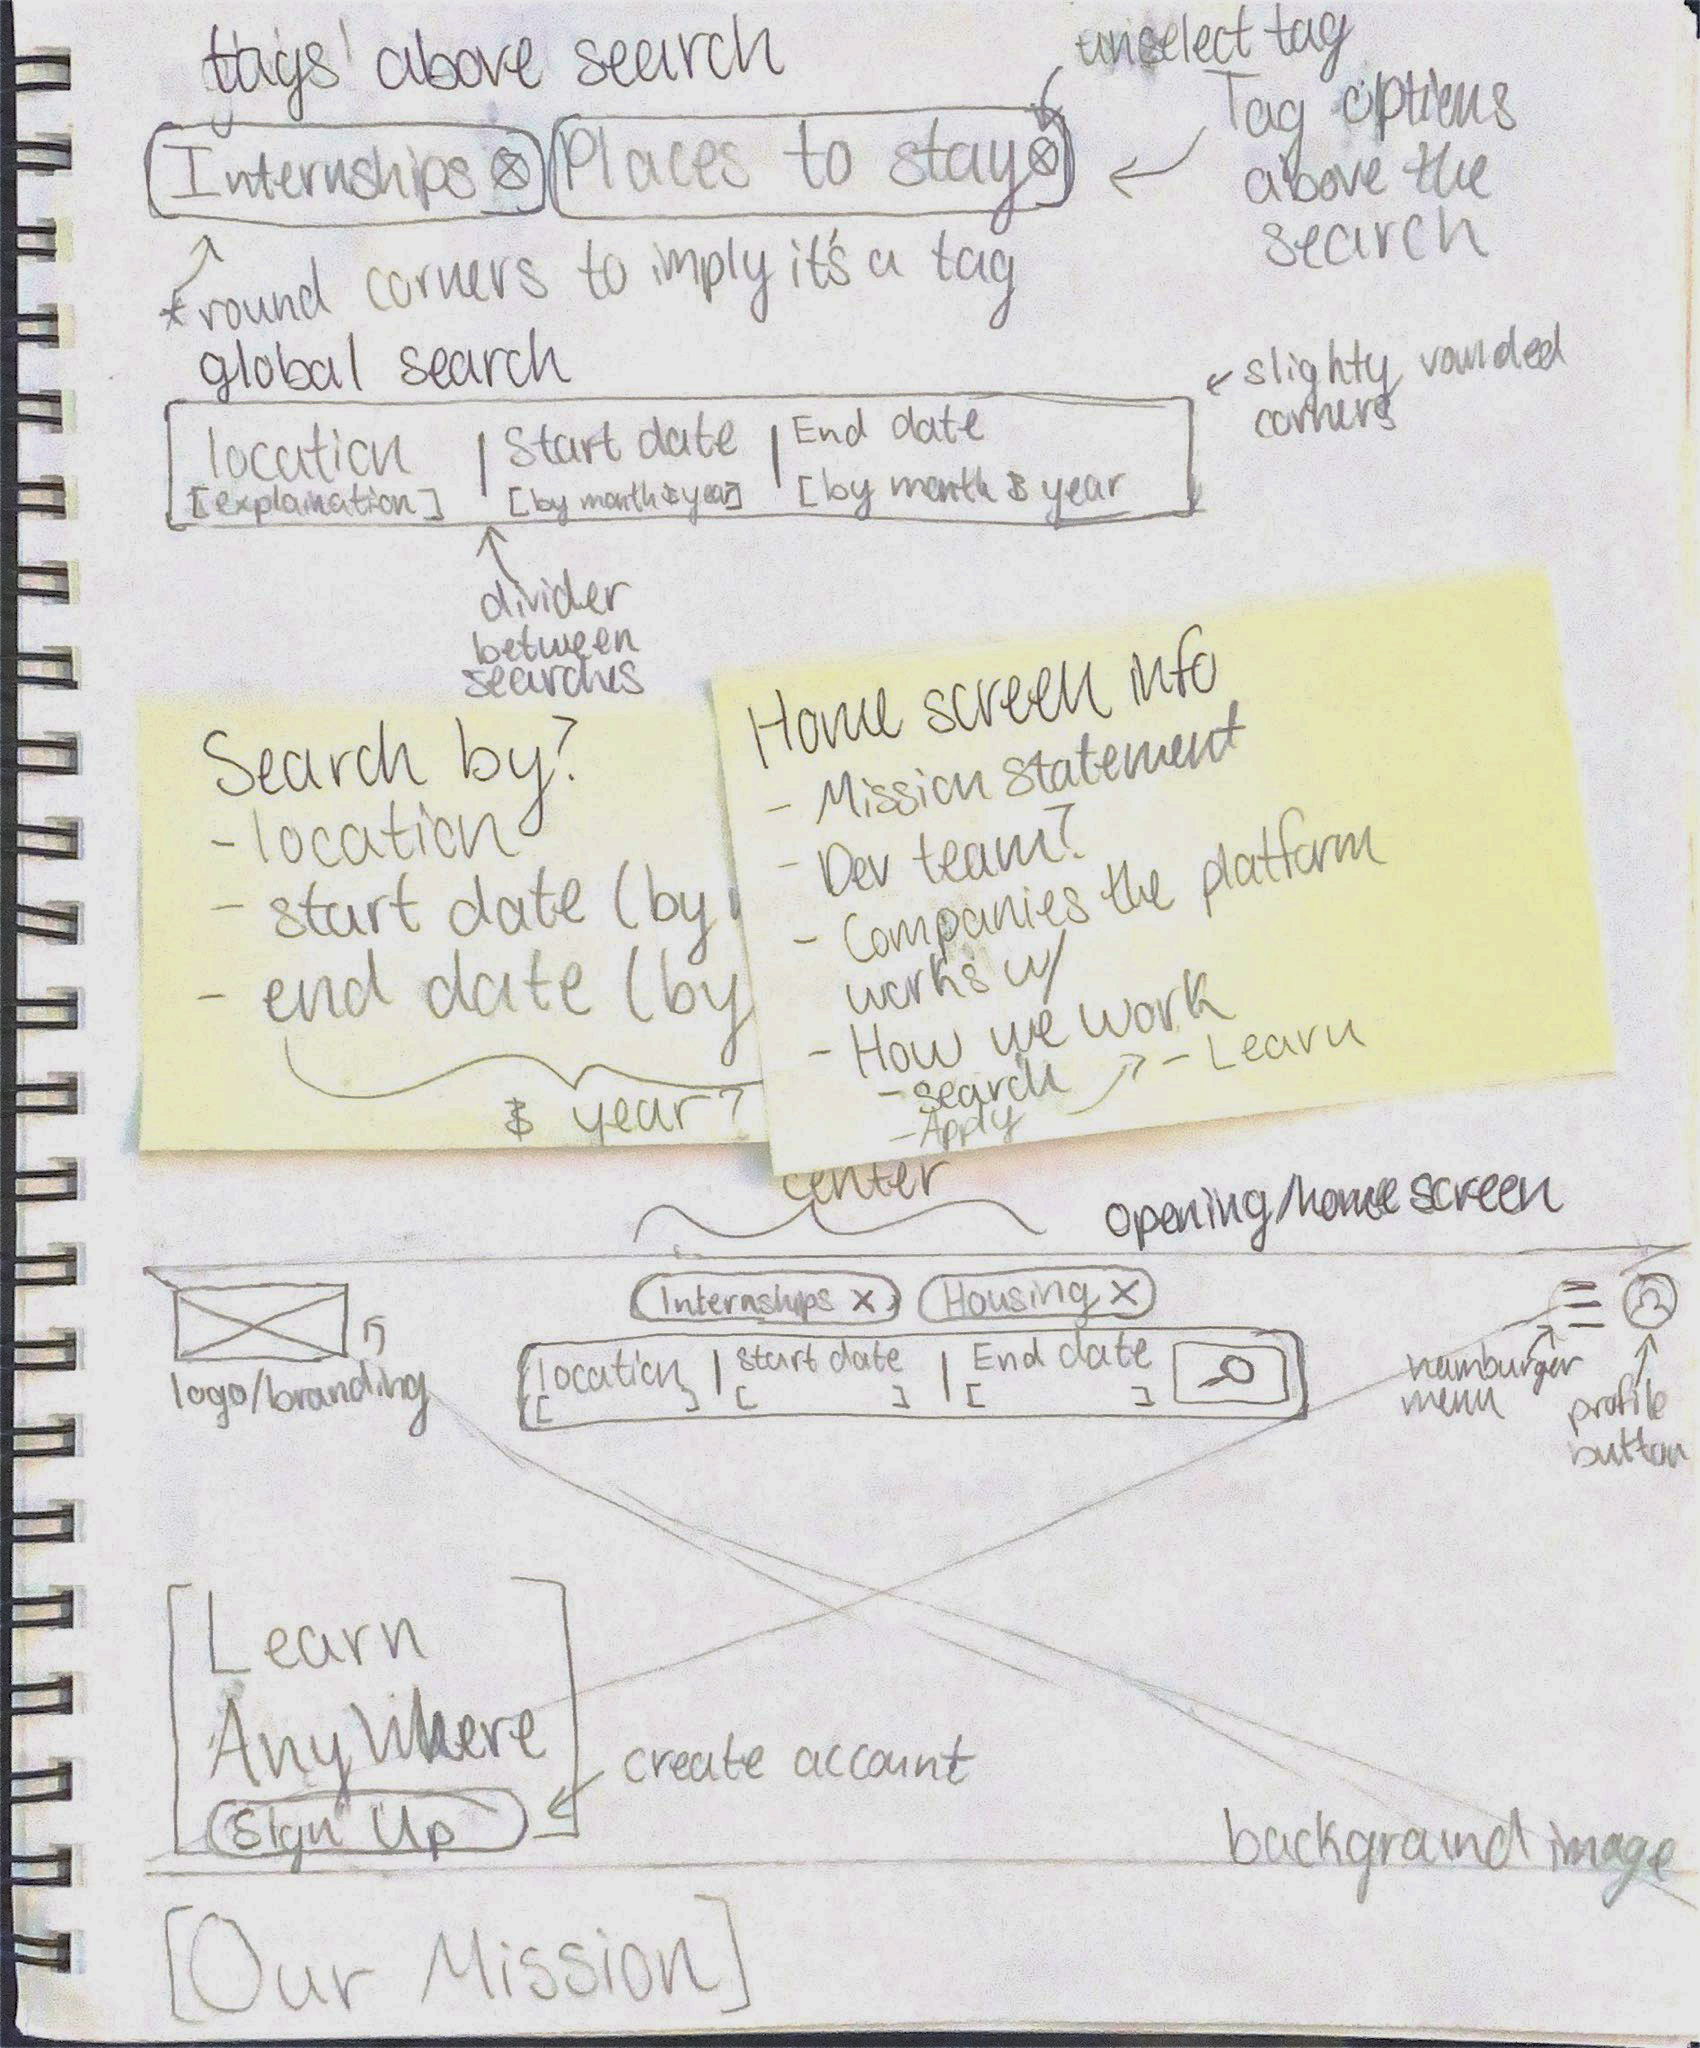 tags above search
unselect tag
Internships ⊗
Places to stay ⊗
Tag options
above the
search
* round corners to imply it's a tag
global search
slighty rounded
corners
location | Start date | End date
[explaination] [by month & year] [by month & year
divider
between
searches
Search by?
- location
- start date (by
- end date (by
& year?
Home screen info
- Mission statement
- Dev team?
- Companies the platform
works w/
- How we work
- search
- Apply
- Learn
center
opening/home screen
Internships x
Housing x
logo/branding
location | start date | End date
[ ] [ ] [ ]
hamburger
menu
profile
button
[Learn
Anywhere
Sign Up]
create account
background image
[Our Mission]